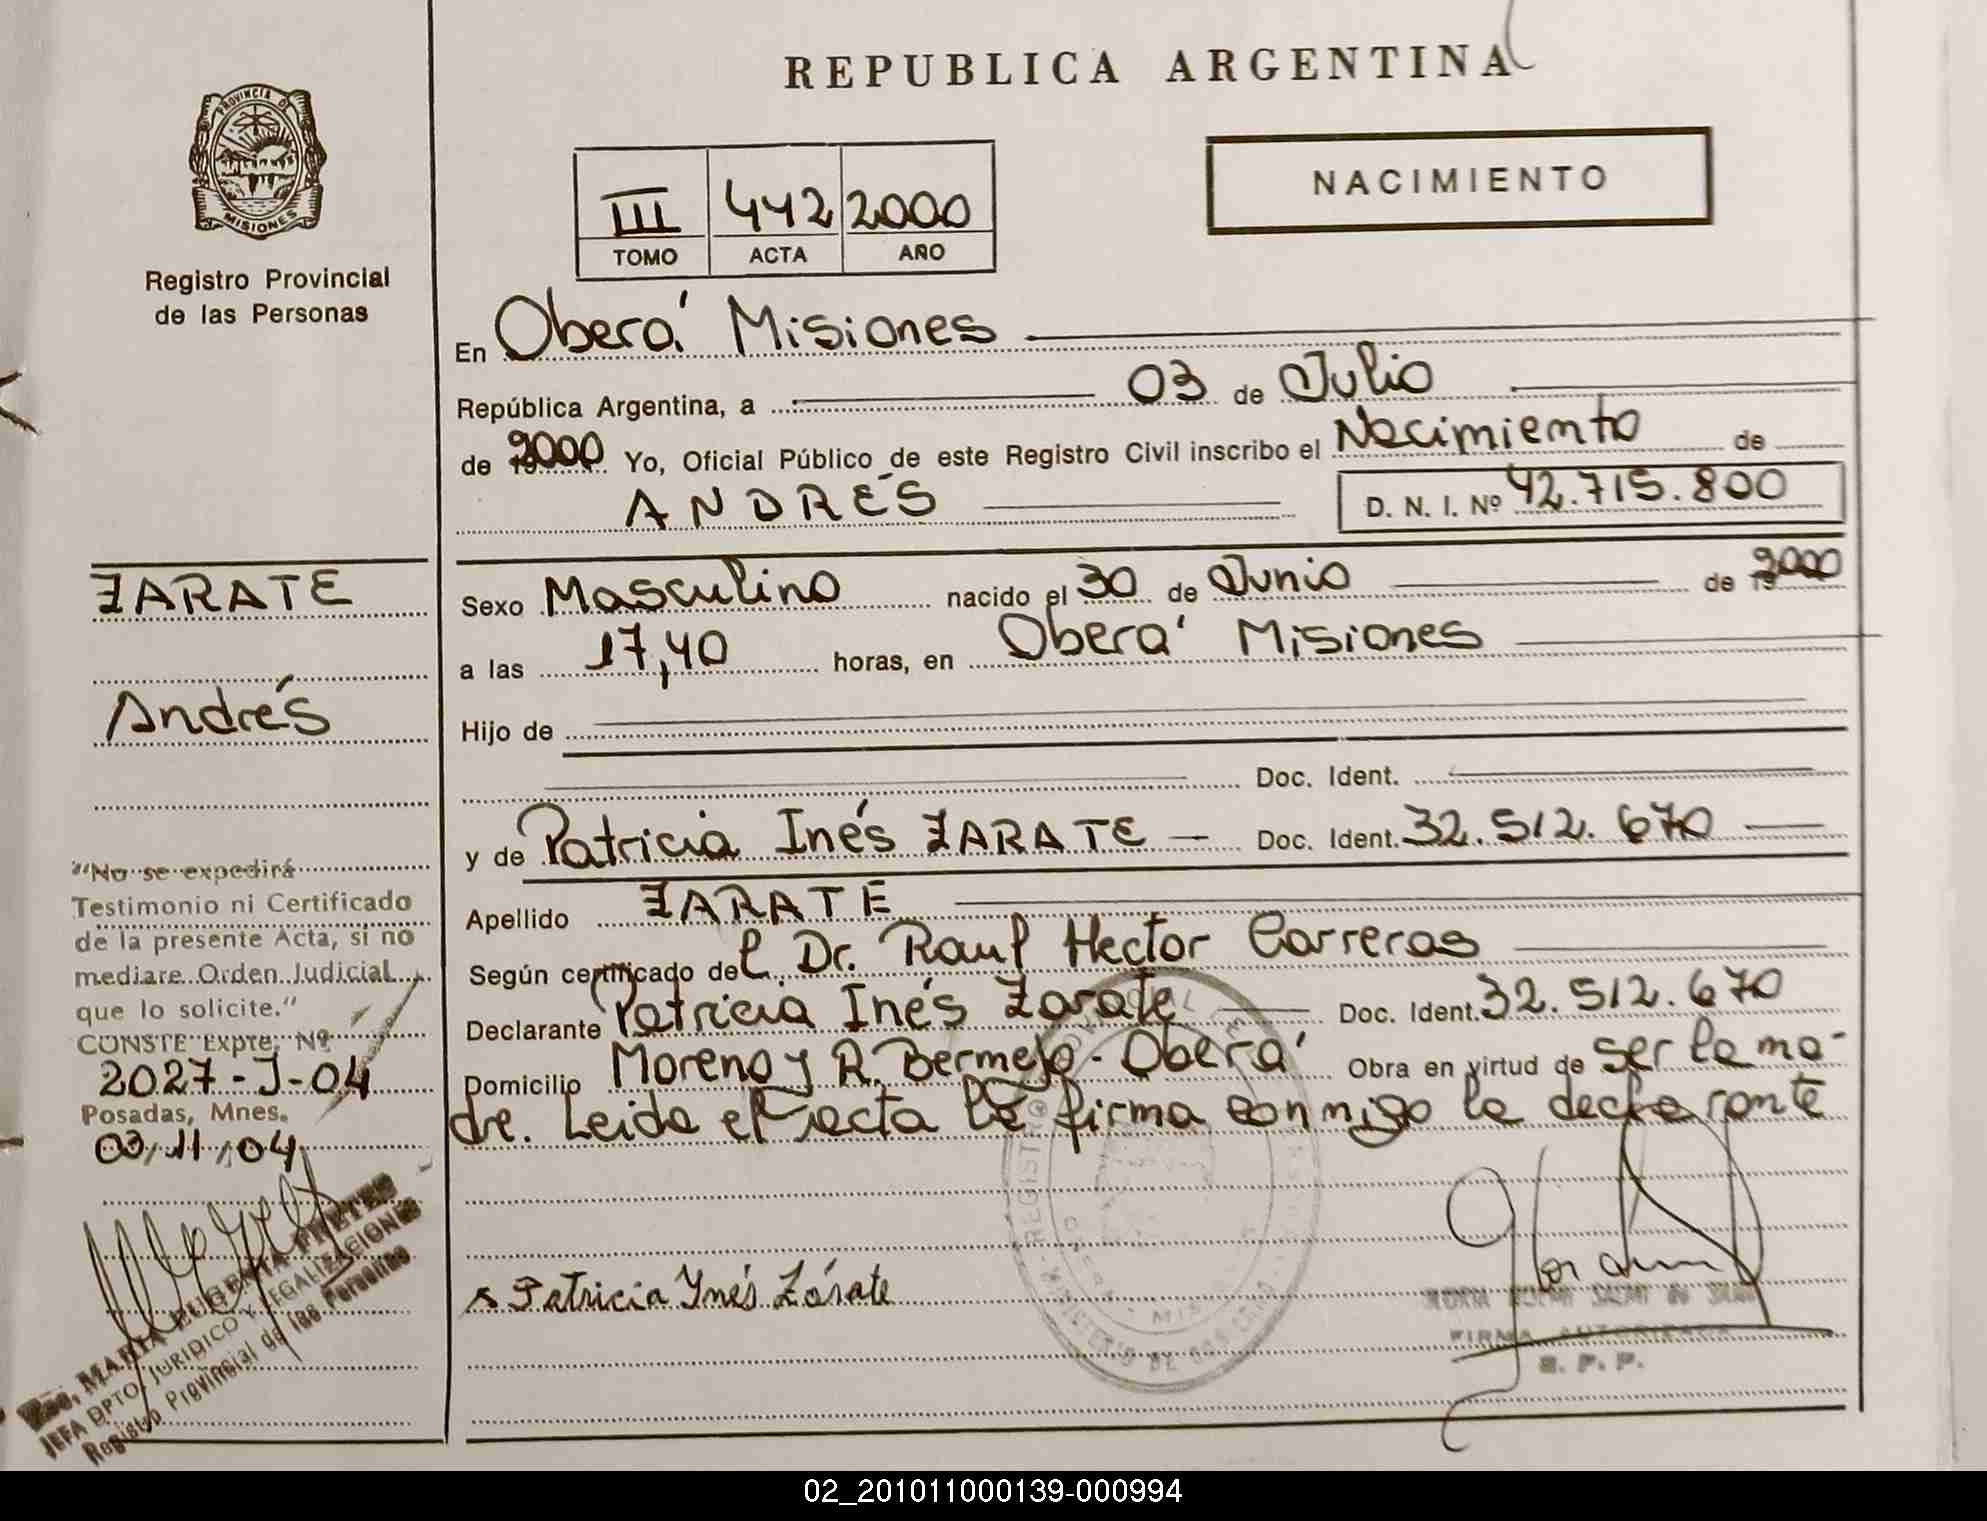 REPUBLICA ARGENTINA
PROVINCIA DE
MISIONES
Registro Provincial
de las Personas
III 442 2000
TOMO ACTA AÑO
NACIMIENTO
En Oberá Misiones
República Argentina, a 03 de Julio
de 2000 Yo, Oficial Público de este Registro Civil inscribo el Nacimiento de
ANDRÉS D. N. I. Nº 42.715.800
ZARATE
Andrés
Sexo Masculino nacido el 30 de Junio de 2000
a las 17,40 horas, en Oberá Misiones
Hijo de
Doc. Ident.
y de Patricia Inés ZARATE Doc. Ident. 32.512.670
Apellido ZARATE
Según certificado del Dr. Raul Hector Carreras
Declarante Patricia Inés Zarate Doc. Ident. 32.512.670
Domicilio Moreno y R. Bermejo - Oberá Obra en virtud de ser la ma-
dre. Leida el acta la firma conmigo la declarante
"No se expedirá
Testimonio ni Certificado
de la presente Acta, si no
mediare Orden Judicial
que lo solicite."
CONSTE Expte. Nº
2027-J-04
Posadas, Mnes.
03/11/04
MARIA EUGENIA
JEFA DPTO. JURIDICO Y LEGALIZACIONES
Registro Provincial de las Personas
Patricia Ynés Zárate
FIRMA AUTORIZADA
02_201011000139-000994